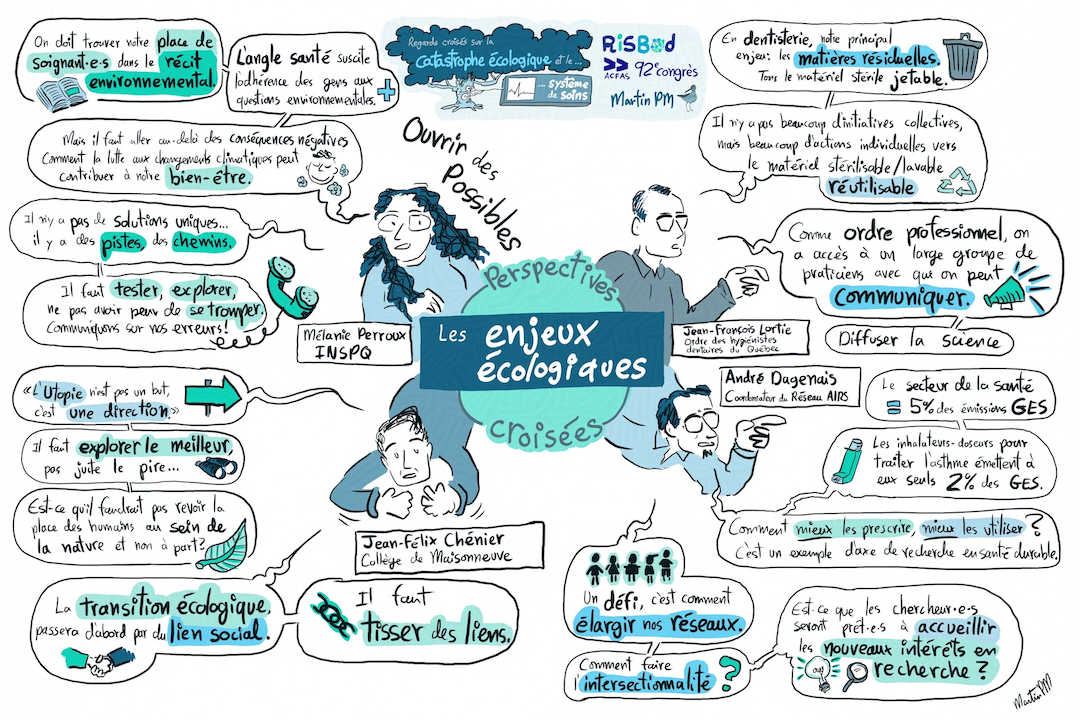 Regards croisés sur la
catastrophe écologique et le...
... système
de soins
RiSBOd
ACFAS 92e congrès
Martin PM
On doit trouver notre place de
soignant·e·s dans le récit
environnemental.
L'angle santé suscite
l'adhérence des gens aux
questions environnementales.
Mais il faut aller au-delà des conséquences négatives
Comment la lutte aux changements climatiques peut
contribuer à notre bien-être.
Il n'y a pas de solutions uniques...
il y a des pistes, des chemins.
Il faut tester, explorer,
ne pas avoir peur de se tromper.
Communiquons sur nos erreurs!
Ouvrir des
Possibles
Mélanie Perroux
INSPQ
Perspectives
Les enjeux
écologiques
croisées
En dentisterie, notre principal
enjeu: les matières résiduelles.
Tous le matériel stérile jetable.
Il n'y a pas beaucoup d'initiatives collectives,
mais beaucoup d'actions individuelles vers
le matériel stérilisable/lavable
réutilisable
Comme ordre professionnel, on
a accès à un large groupe de
praticiens avec qui on peut
communiquer.
Diffuser la science
Jean-François Lortie
Ordre des hygiénistes
dentaires du Québec
«L'Utopie n'est pas un but,
c'est une direction.»
Il faut explorer le meilleur,
pas juste le pire...
Est-ce qu'il faudrait pas revoir la
place des humains au sein de
la nature et non à part?
La transition écologique,
passera d'abord par du lien social.
Il faut
tisser des liens.
Jean-Félix Chénier
Collège de Maisonneuve
André Dagenais
Coordonateur du Réseau AIRS
Le secteur de la santé
= 5% des émissions GES
Les inhalateurs-doseurs pour
traiter l'asthme émettent à
eux seuls 2% des GES.
Comment mieux les prescrire, mieux les utiliser?
C'est un exemple d'axe de recherche en santé durable.
Un défi, c'est comment
élargir nos réseaux.
Comment faire
l'intersectionnalité ?
Est-ce que les chercheur·e·s
seront prêt·e·s à accueillir
les nouveaux intérêts en
recherche?
Martin PM